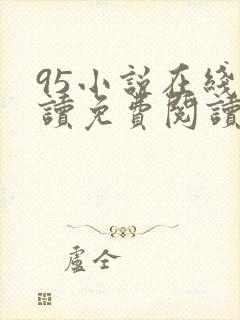 95小说在线
讀免費閱讀
盧仝